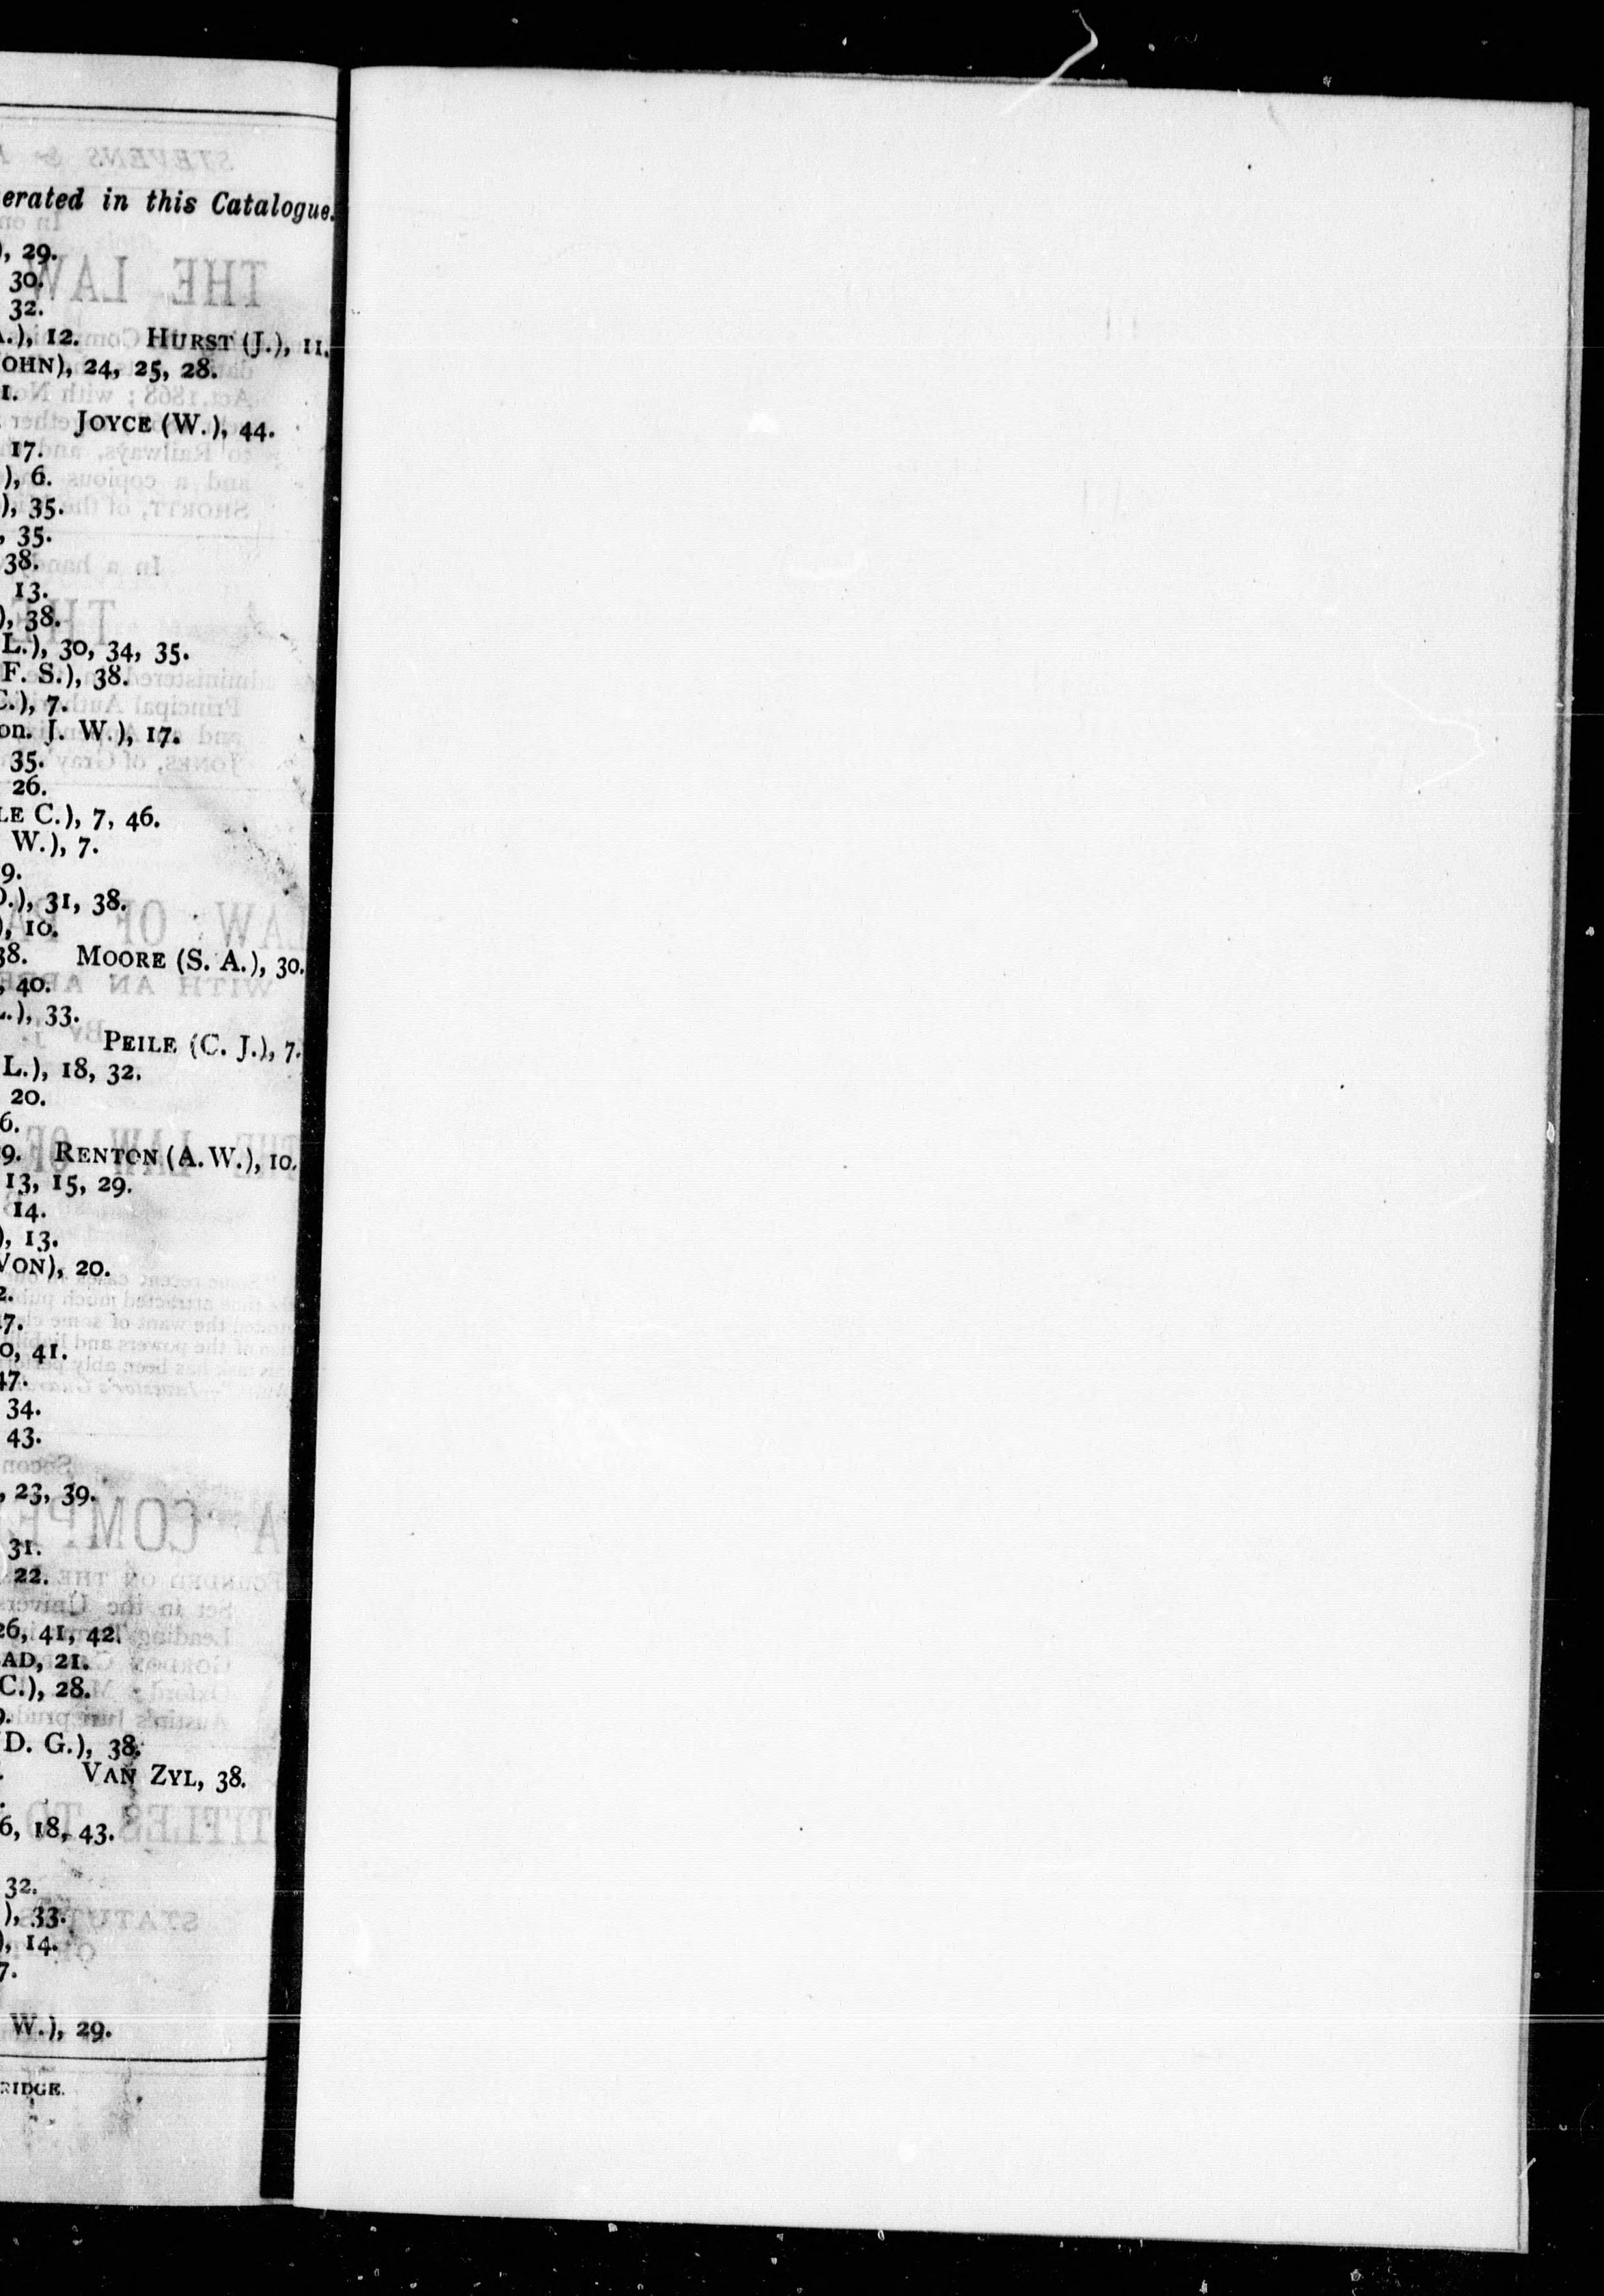 erated in this Catalogue.
), 29.
30.
32.
.), 12. HURST (J.), 11.
OHN), 24, 25, 28.
1.
JOYCE (W.), 44.
17.
), 6.
), 35.
, 35.
38.
13.
), 38.
L.), 30, 34, 35.
F. S.), 38.
C.), 7.
on. J. W.), 17.
35.
26.
LE C.), 7, 46.
W.), 7.
9.
D.), 31, 38.
), 10.
38. MOORE (S. A.), 30.
, 40.
L.), 33.
PEILE (C. J.), 7.
L.), 18, 32.
20.
6.
9. RENTON (A. W.), 10.
13, 15, 29.
14.
), 13.
VON), 20.
2.
17.
0, 41.
47.
34.
43.
, 23, 39.
31.
22.
26, 41, 42.
AD, 21.
C.), 28.
9.
D. G.), 38.
VAN ZYL, 38.
6, 18, 43.
32.
), 33.
), 14.
7.
W.), 29.
RIDGE.